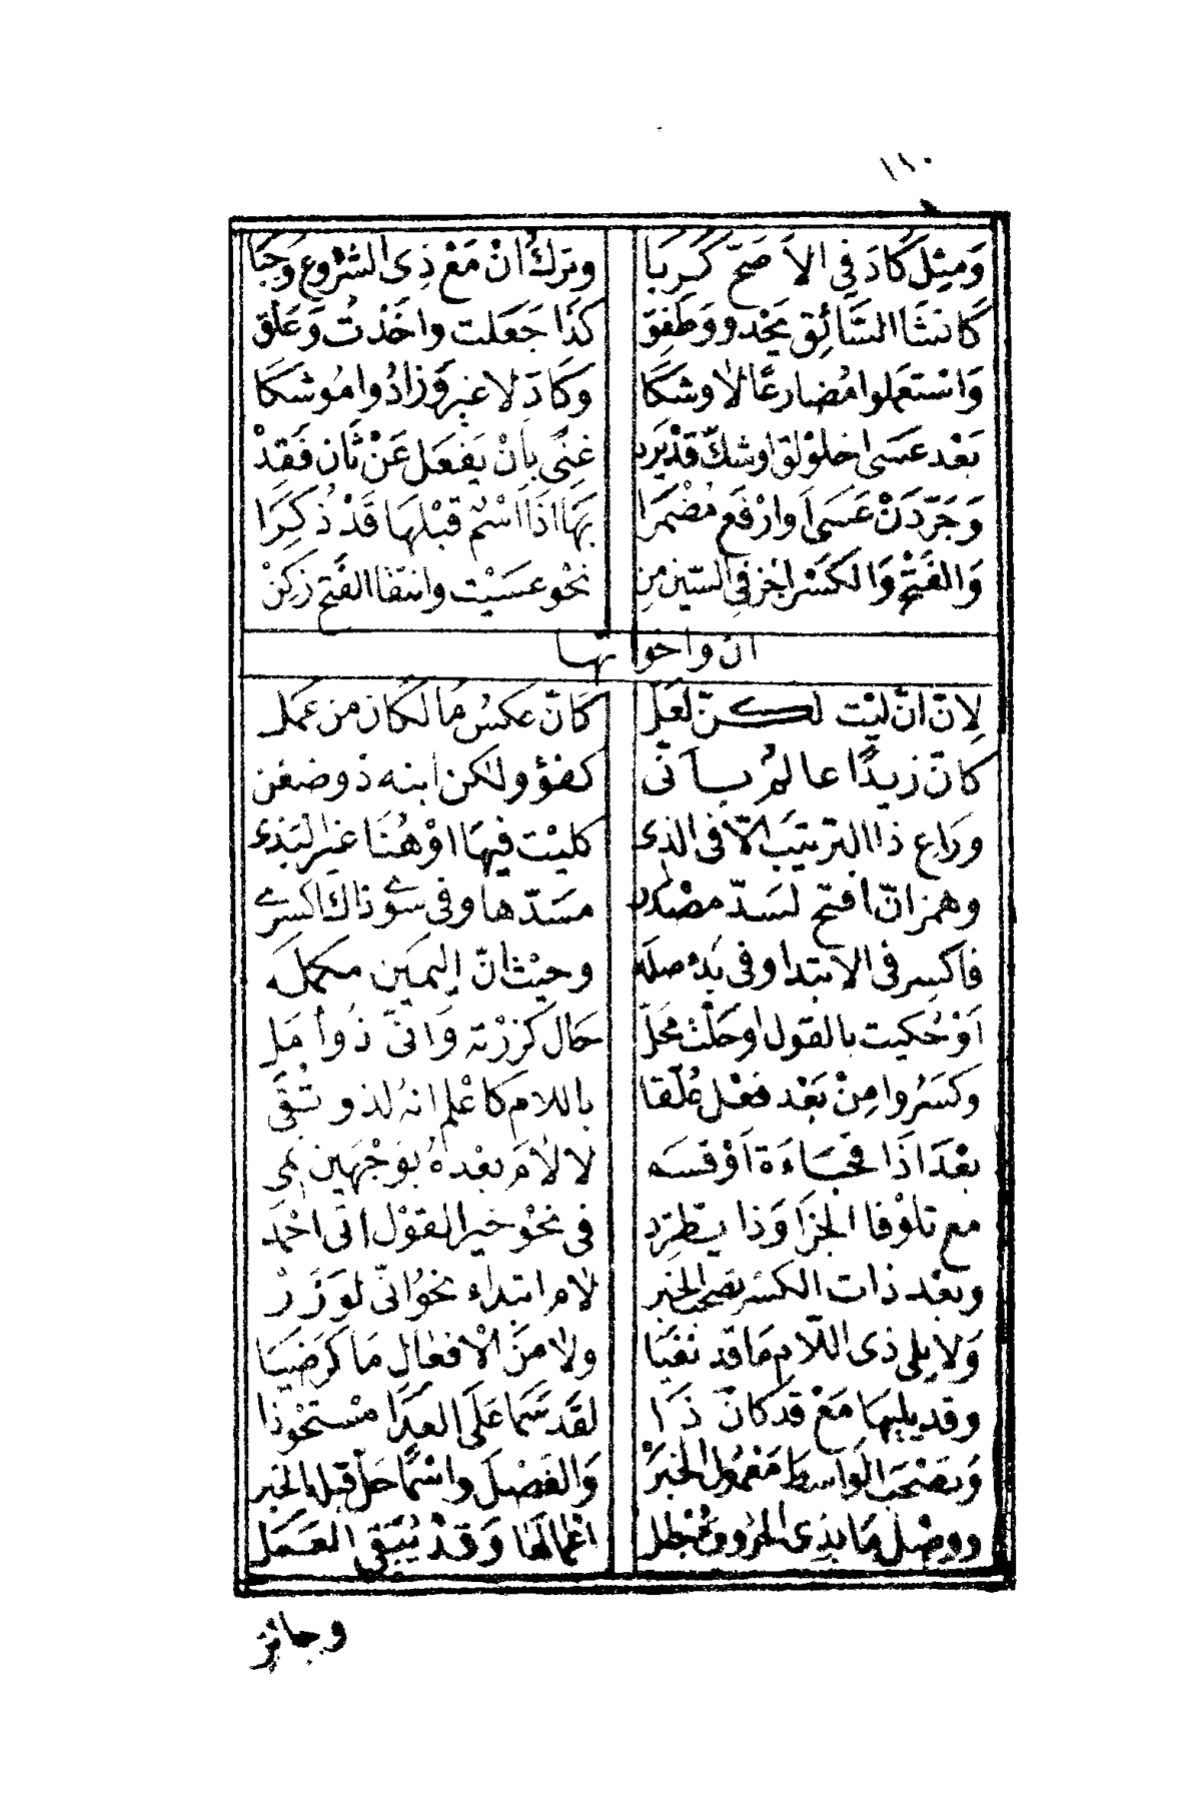 ١١٠
وَمِثْلُ كَادَ فِي الاَصَحّ كَرَبَا وترك اَنْ مَعْ ذِى الشُّرُوعِ وَجَبَا
كَانشَا السَّائِق يَحْدو وَطَفِق كَذَا جَعَلت واخَذْتُ وَعَلِق
وَاسْتعمَلوا مُضارعًا لاوشكَا وَكَادَ لا غير وَزادُوا مُوشكَا
بَعْد عَسَى اخلوْلق اوشك قدْ يَرد غِنًى بِاَنْ يَفعَل عَنْ ثَان فَقِدْ
وَجَرّدَنْ عَسَى اَوارْفَع مُضْمَرا بهَا اذَا اسْم قبْلهَا قَدْ ذُكِرَا
وَالفَتْح وَالكَسْر اجِز فِي السّين مِن نحْو عسَيْت وانتقا الفَتح زكِنْ
ان واخواتها
لِانّ اَنَّ ليْت لكنّ لَعَلّ كَانّ عَكسُ مَا لكَان من عَمَل
كانّ زيدًا عالمٌ بانّى كفؤ ولكن ابنه ذوضغن
ورَاع ذا الترتيَب الّا فى الذى كليْت فيهَا اوْ هُنَا غير البَذى
وهمز انّ افتح لسَدّ مصْدر مسَدّها وفى سوى ذاك اكسر
فاكسر فى الابتدا وفى بَدْء صله وحيْث انّ ليمَين مكمله
اَوْ حُكيت بالقول اوحَلّت محَلّ حَال كزرْته وَانّى ذُو اَمَل
وكسَرُوا مِنْ بَعْد فعْل عُلّقا باللام كاعْلم انهُ لذو تُقَى
بعْدَ اذَا فجَاءَة اَوْ قسَم لا لاَمَ بعْدهُ بوَجْهَين نمى
مع تلوْ فا الجزَا وَذا يطّرد فى نحْو خير القوْل انّى احْمَد
وبعْد ذات الكسر تصحَب الخبر لام ابتداء نحوُ انّى لوَزَرْ
وَلا يلى ذى اللّام مَا قد نفيَا ولا منَ الْافعَالِ مَا كرَضيَا
وقد يليهَا مَعْ قد كانّ ذَا لقَد سَمَا عَلَى العِدَا مسْتحْوذا
وَتصْحَب الوَاسط مَعْمول الخبَرْ وَالفَصْلَ واسْمًا حَلّ قبله الخبر
ووصْل مَا بذى الحرُوف مُبْطل اعْمالهَا وَقدْ يُبَقى العَمَل
وجائز